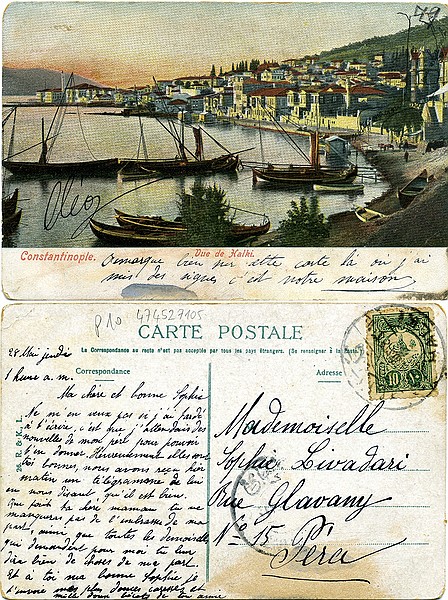 79
Cléo
Constantinople.
Vue de Halki.
Remarque bien par cette carte là où j'ai
mis des signes c'est notre maison
P 10 474527105
CARTE POSTALE
La Correspondance au recto n'est pas acceptée par tous les pays étrangers. (Se renseigner à la Poste.)
28 Mai jeudi
Correspondance
Adresse
1 heure a. m.
Ma chère et bonne Sophie
Ne m'en veux pas si j'ai tardé
à t'écrire, c'est que j'attendais des
nouvelles de mon père pour pouvoir
t'en donner. Heureusement elles sont
très bonnes, nous avons reçu hier
matin un télégramme de lui
en nous disant, qu'il est bien.
Que fait ta chère maman tu ne
manqueras pas de l'embrasser de ma
part, ainsi que toutes les demoiselles
qui demandent pour moi tu leur
dira bien de choses de ma part.
Et à toi ma bonne Sophie je
t'envoie mes plus douces caresses et
mille doux baisers de ton amie
Mademoiselle
Sophie Livadari
Rue Glavany
No 15 Péra
10